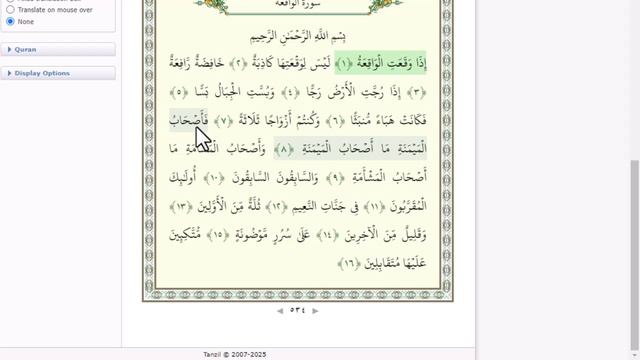 Translate on mouse over
None
Quran
Display Options
سورة الواقعة
بِسْمِ اللَّهِ الرَّحْمَٰنِ الرَّحِيمِ
إِذَا وَقَعَتِ الْوَاقِعَةُ ﴿١﴾ لَيْسَ لِوَقْعَتِهَا كَاذِبَةٌ ﴿٢﴾ خَافِضَةٌ رَّافِعَةٌ
﴿٣﴾ إِذَا رُجَّتِ الْأَرْضُ رَجًّا ﴿٤﴾ وَبُسَّتِ الْجِبَالُ بَسًّا ﴿٥﴾
فَكَانَتْ هَبَاءً مُّنبَثًّا ﴿٦﴾ وَكُنتُمْ أَزْوَاجًا ثَلَاثَةً ﴿٧﴾ فَأَصْحَابُ
الْمَيْمَنَةِ مَا أَصْحَابُ الْمَيْمَنَةِ ﴿٨﴾ وَأَصْحَابُ الْمَشْأَمَةِ مَا
أَصْحَابُ الْمَشْأَمَةِ ﴿٩﴾ وَالسَّابِقُونَ السَّابِقُونَ ﴿١٠﴾ أُولَٰئِكَ
الْمُقَرَّبُونَ ﴿١١﴾ فِي جَنَّاتِ النَّعِيمِ ﴿١٢﴾ ثُلَّةٌ مِّنَ الْأَوَّلِينَ ﴿١٣﴾
وَقَلِيلٌ مِّنَ الْآخِرِينَ ﴿١٤﴾ عَلَىٰ سُرُرٍ مَّوْضُونَةٍ ﴿١٥﴾ مُّتَّكِئِينَ
عَلَيْهَا مُتَقَابِلِينَ ﴿١٦﴾
٥٣٤
Tanzil © 2007-2025